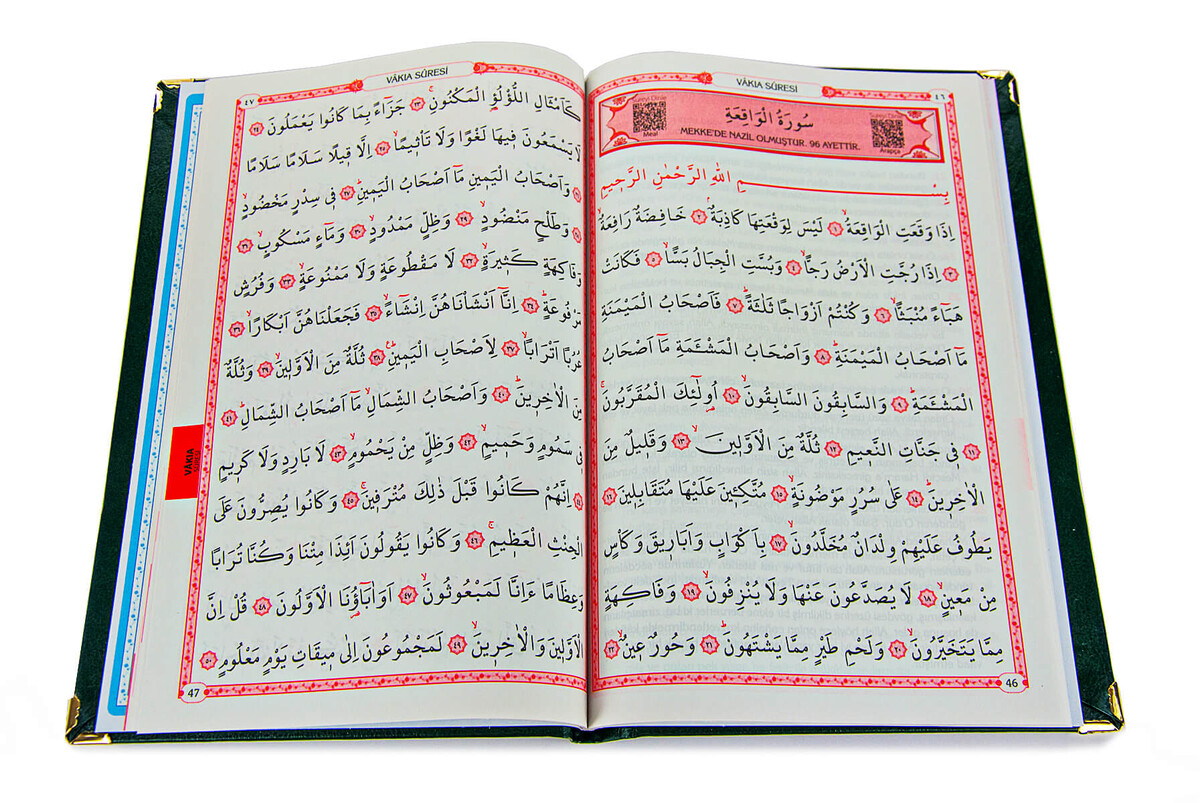 VÂKIA SÛRESİ
٤٦
Sureyi Dinle
Meal
سُورَةُ الْوَاقِعَةِ
MEKKE'DE NAZİL OLMUŞTUR. 96 AYETTİR.
Sureyi Dinle
Arapça
بِسْمِ اللهِ الرَّحْمٰنِ الرَّحٖيمِ
اِذَا وَقَعَتِ الْوَاقِعَةُۙ ﴿١﴾ لَيْسَ لِوَقْعَتِهَا كَاذِبَةٌۘ ﴿٢﴾ خَافِضَةٌ رَافِعَةٌۙ
﴿٣﴾ اِذَا رُجَّتِ الْاَرْضُ رَجًّاۙ ﴿٤﴾ وَبُسَّتِ الْجِبَالُ بَسًّاۙ ﴿٥﴾ فَكَانَتْ
هَبَٓاءً مُنْبَثًّاۙ ﴿٦﴾ وَكُنْتُمْ اَزْوَاجًا ثَلٰثَةًؕ ﴿٧﴾ فَاَصْحَابُ الْمَيْمَنَةِ
مَٓا اَصْحَابُ الْمَيْمَنَةِؕ ﴿٨﴾ وَاَصْحَابُ الْمَشْـَٔمَةِ مَٓا اَصْحَابُ
الْمَشْـَٔمَةِؕ ﴿٩﴾ وَالسَّابِقُونَ السَّابِقُونَۙ ﴿١٠﴾ اُو۬لٰٓئِكَ الْمُقَرَّبُونَۚ
﴿١١﴾ فٖي جَنَّاتِ النَّعٖيمِ ﴿١٢﴾ ثُلَّةٌ مِنَ الْاَوَّلٖينَۙ ﴿١٣﴾ وَقَلٖيلٌ مِنَ
الْاٰخِرٖينَؕ ﴿١٤﴾ عَلٰى سُرُرٍ مَوْضُونَةٍۙ ﴿١٥﴾ مُتَّكِـٖٔينَ عَلَيْهَا مُتَقَابِلٖينَ ﴿١٦﴾
يَطُوفُ عَلَيْهِمْ وِلْدَانٌ مُخَلَّدُونَۙ ﴿١٧﴾ بِاَكْوَابٍ وَاَبَارٖيقَ وَكَأْسٍ
مِنْ مَعٖينٍۙ ﴿١٨﴾ لَا يُصَدَّعُونَ عَنْهَا وَلَا يُنْزِفُونَۙ ﴿١٩﴾ وَفَاكِهَةٍ
مِمَّا يَتَخَيَّرُونَۙ ﴿٢٠﴾ وَلَحْمِ طَيْرٍ مِمَّا يَشْتَهُونَؕ ﴿٢١﴾ وَحُورٌ عٖينٌۙ ﴿٢٢﴾
46
VÂKIA SÛRESİ
٤٧
كَاَمْثَالِ اللُّؤْلُؤِ الْمَكْنُونِۚ ﴿٢٣﴾ جَزَٓاءً بِمَا كَانُوا يَعْمَلُونَ ﴿٢٤﴾
لَا يَسْمَعُونَ فٖيهَا لَغْوًا وَلَا تَأْثٖيمًاۙ ﴿٢٥﴾ اِلَّا قٖيلًا سَلَامًا سَلَامًا
﴿٢٦﴾ وَاَصْحَابُ الْيَمٖينِ مَٓا اَصْحَابُ الْيَمٖينِؕ ﴿٢٧﴾ فٖي سِدْرٍ مَخْضُودٍۙ
﴿٢٨﴾ وَطَلْحٍ مَنْضُودٍۙ ﴿٢٩﴾ وَظِلٍّ مَمْدُودٍۙ ﴿٣٠﴾ وَمَٓاءٍ مَسْكُوبٍۙ ﴿٣١﴾
وَفَاكِهَةٍ كَثٖيرَةٍۙ ﴿٣٢﴾ لَا مَقْطُوعَةٍ وَلَا مَمْنُوعَةٍۙ ﴿٣٣﴾ وَفُرُشٍ
مَرْفُوعَةٍؕ ﴿٣٤﴾ اِنَّٓا اَنْشَأْنَاهُنَّ اِنْشَٓاءًۙ ﴿٣٥﴾ فَجَعَلْنَاهُنَّ اَبْكَارًاۙ ﴿٣٦﴾
عُرُبًا اَتْرَابًاۙ ﴿٣٧﴾ لِاَصْحَابِ الْيَمٖينِؕ ﴿٣٨﴾ ثُلَّةٌ مِنَ الْاَوَّلٖينَۙ ﴿٣٩﴾ وَثُلَّةٌ
مِنَ الْاٰخِرٖينَؕ ﴿٤٠﴾ وَاَصْحَابُ الشِّمَالِۙ مَٓا اَصْحَابُ الشِّمَالِؕ ﴿٤١﴾
فٖي سَمُومٍ وَحَمٖيمٍۙ ﴿٤٢﴾ وَظِلٍّ مِنْ يَحْمُومٍۙ ﴿٤٣﴾ لَا بَارِدٍ وَلَا كَرٖيمٍ
﴿٤٤﴾ اِنَّهُمْ كَانُوا قَبْلَ ذٰلِكَ مُتْرَفٖينَۚ ﴿٤٥﴾ وَكَانُوا يُصِرُّونَ عَلَى
الْحِنْثِ الْعَظٖيمِۚ ﴿٤٦﴾ وَكَانُوا يَقُولُونَ اَئِذَا مِتْنَا وَكُنَّا تُرَابًا
وَعِظَامًا ءَاِنَّا لَمَبْعُوثُونَۙ ﴿٤٧﴾ اَوَاٰبَٓاؤُ۬نَا الْاَوَّلُونَ ﴿٤٨﴾ قُلْ اِنَّ
الْاَوَّلٖينَ وَالْاٰخِرٖينَۙ ﴿٤٩﴾ لَمَجْمُوعُونَ اِلٰى مٖيقَاتِ يَوْمٍ مَعْلُومٍ ﴿٥٠﴾
47
VÂKIA